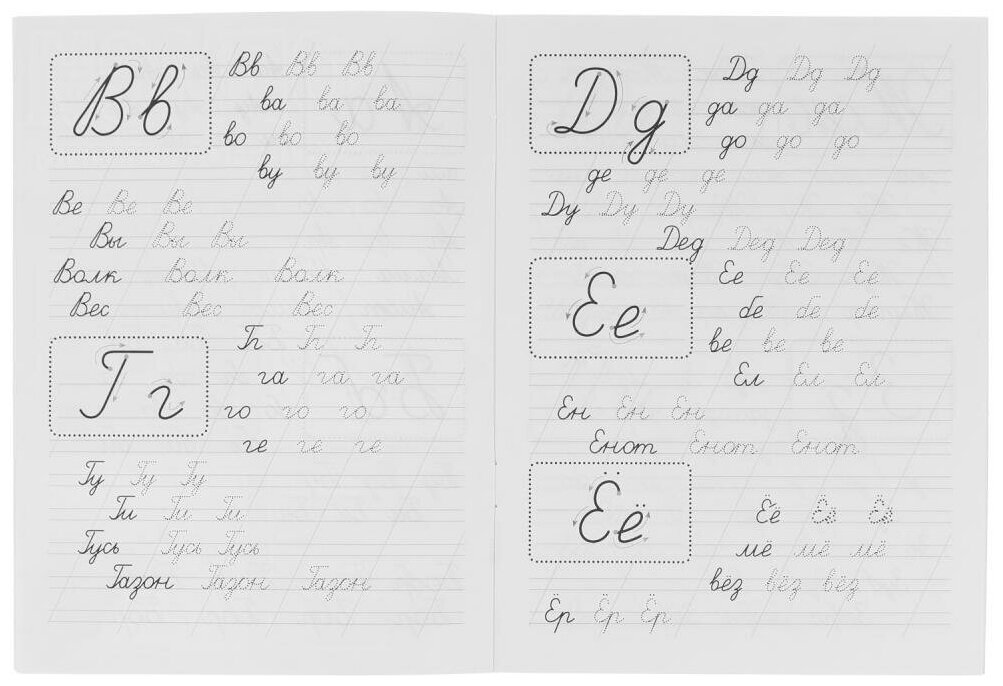 Вв Вв Вв Вв
ва ва ва
во во во
ву ву ву
Ве Ве Ве
Вы Вы Вы
Волк Волк Волк
Вес Вес Вес
Гг Гг Гг Гг
га га га
го го го
ге ге ге
Гу Гу Гу
Ги Ги Ги
Гусь Гусь Гусь
Газон Газон Газон
Дд Дд Дд Дд
да да да
до до до
де де де
Ду Ду Ду
Дед Дед Дед
Ее Ее Ее Ее
бе бе бе
ве ве ве
Ел Ел Ел
Ен Ен Ен
Енот Енот Енот
Ёё Ёё Ёё Ёё
мё мё мё
вёз вёз вёз
Ёр Ёр Ёр